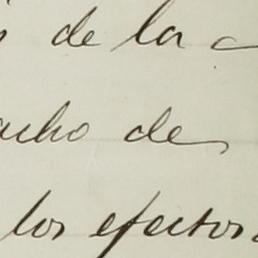 de la
de
los efectos